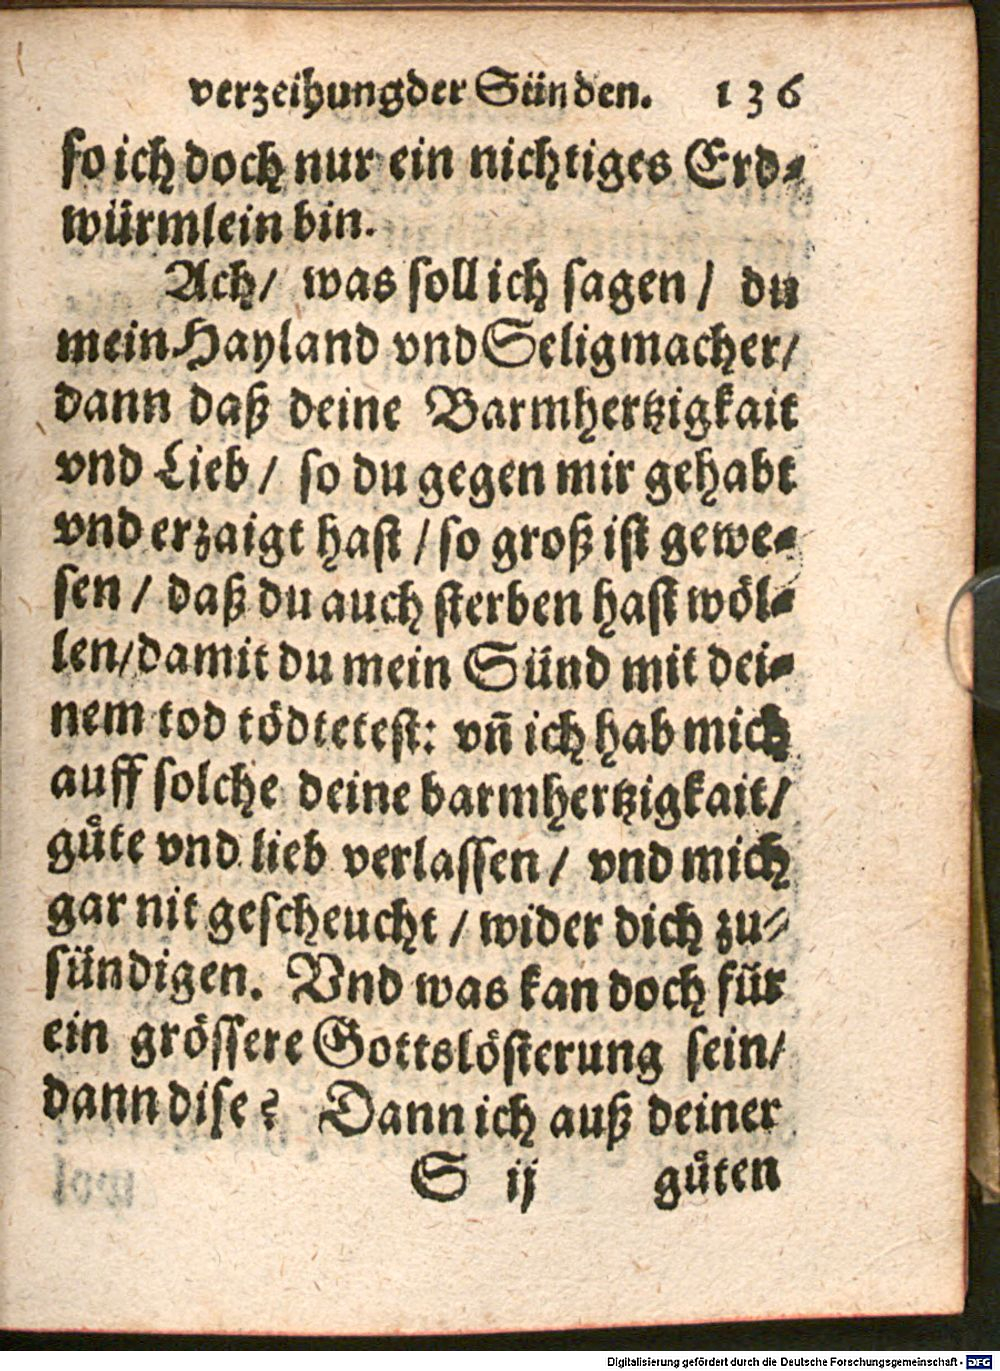 verzeihung der Sünden. 136
so ich doch nur ein nichtiges Erd-
würmlein bin.
Ach/ was soll ich sagen/ du
mein Hayland vnd Seligmacher/
dann daß deine Barmhertzigkait
vnd Lieb/ so du gegen mir gehabt
vnd erzaigt hast/ so groß ist gewe-
sen/ daß du auch sterben hast wöl-
len/ damit du mein Sünd mit dei-
nem tod tödtetest: vñ ich hab mich
auff solche deine barmhertzigkait/
guͤte vnd lieb verlassen/ vnd mich
gar nit gescheucht/ wider dich zu-
sündigen. Vnd was kan doch für
ein grössere Gottslösterung sein/
dann dise? Dann ich auß deiner
S ij guͤten
Digitalisierung gefördert durch die Deutsche Forschungsgemeinschaft - DFG